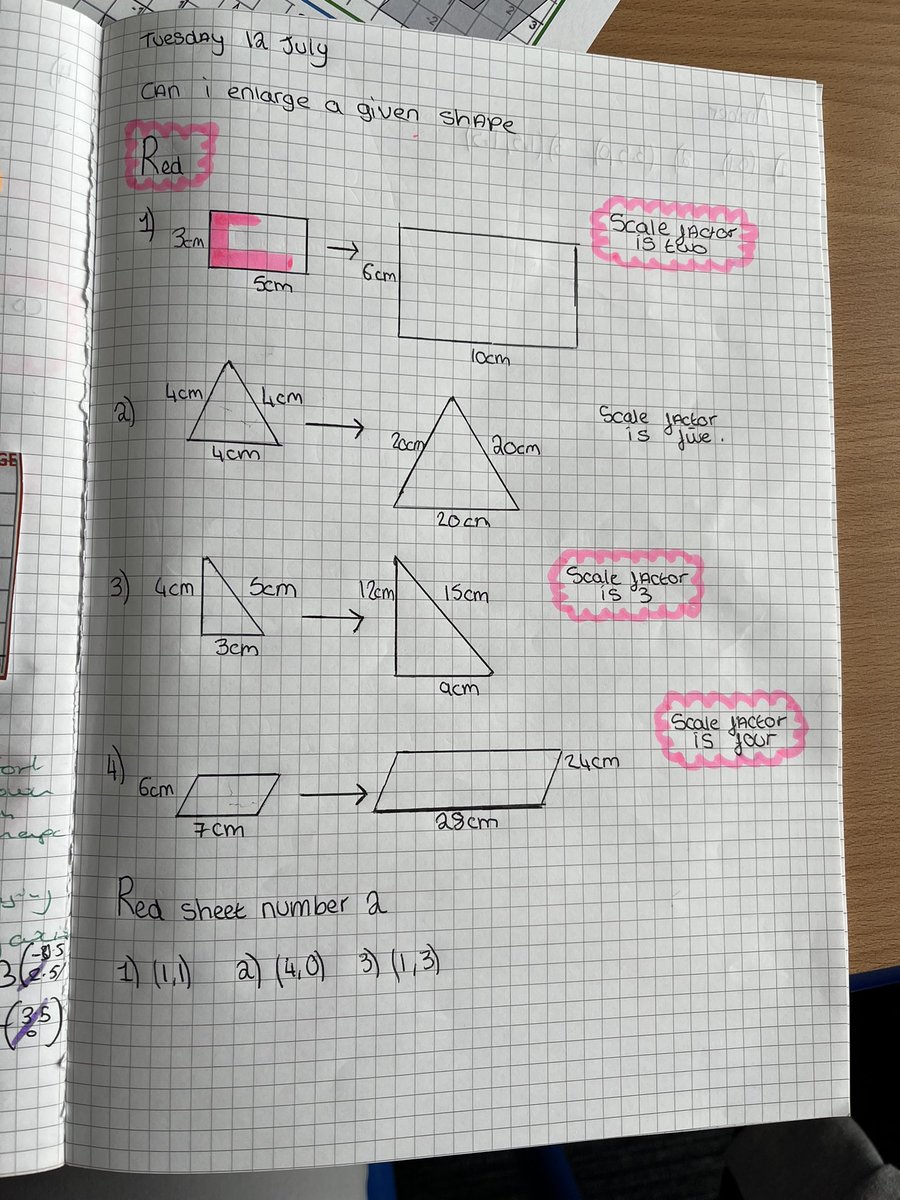 Tuesday 12 July
CAN i enlarge a given shape
Red
1) 3cm 5cm → 6cm 10cm
Scale factor
is two
2) 4cm 4cm 4cm → 20cm 20cm 20cm
Scale factor
is five.
3) 4cm 5cm 3cm → 12cm 15cm 9cm
Scale factor
is 3
4) 6cm 7cm → 24cm 28cm
Scale factor
is four
Red sheet number 2
1) (1,1) 2) (4,0) 3) (1,3)